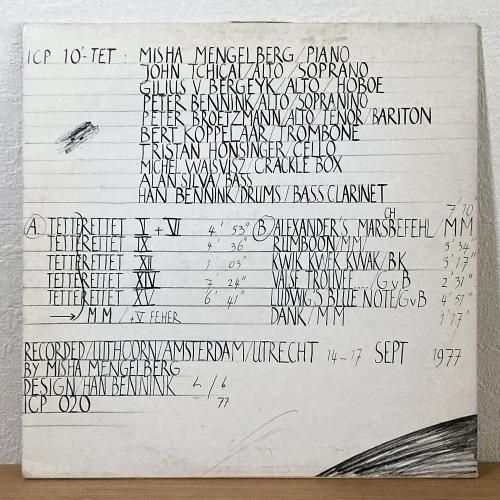 ICP 10'-TET : MISHA MENGELBERG/PIANO
JOHN TCHICAI/ALTO/SOPRANO
GILIUS V BERGEYK/ALTO/HOBOE
PETER BENNINK/ALTO/SOPRANINO
PETER BROETZMANN/ALTO/TENOR/BARITON
BERT KOPPELAAR/TROMBONE
TRISTAN HONSINGER/CELLO
MICHEL WAISVISZ/CRACKLE BOX
ALAN SILVA/BASS
HAN BENNINK/DRUMS/BASS CLARINET
A. TETTERRETTET V + VI 4' 53"
TETTERRETTET IX 4' 36"
TETTERRETTET XII 1' 03"
TETTERRETTET XIV 7' 24"
TETTERRETTET XV 6' 41"
→ MM / +V FEHER
B ALEXANDER'S MARSCHBEFEHL/MM 7'10
RUMBOON/MM/ 3' 34
KWIK KWEK KWAK/BK 3' 17"
VALSE TROUVÉE.../GvB 2' 31"
LUDWIG'S BLUE NOTE/GvB 4' 51"
DANK/MM 1' 17"
RECORDED/UITHOORN/AMSTERDAM/UTRECHT 14-17 SEPT 1977
BY MISHA MENGELBERG
DESIGN/HAN BENNINK
ICP 020 77